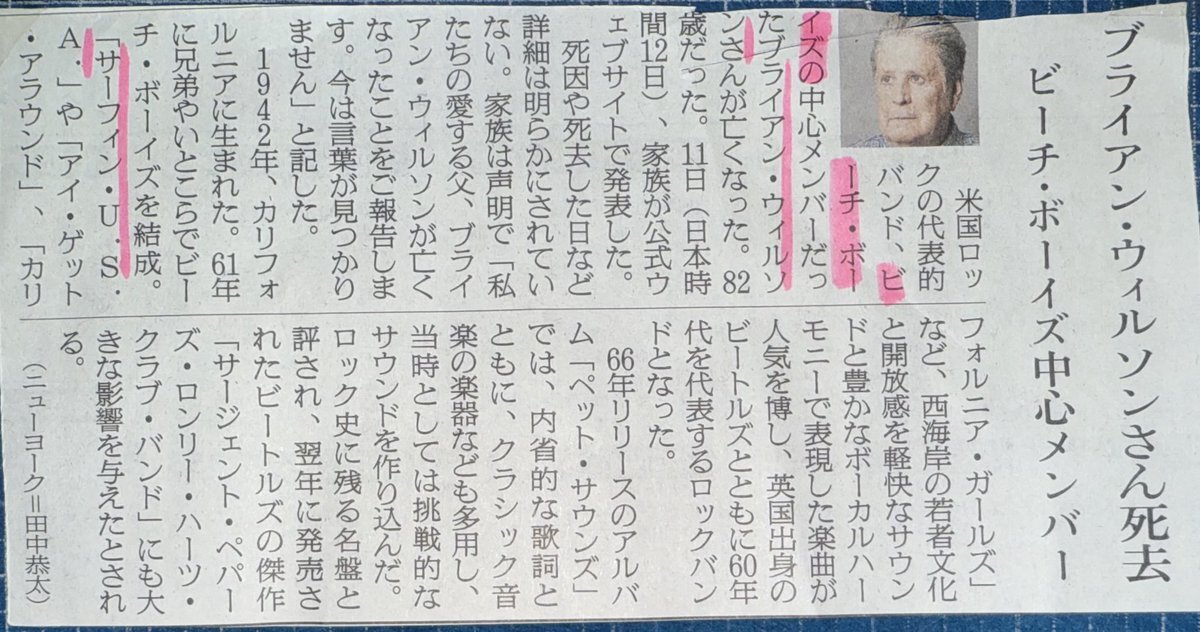 ブライアン・ウィルソンさん死去
ビーチ・ボーイズ中心メンバー
米国ロッ
クの代表的
バンド、ビ
ーチ・ボー
イズの中心メンバーだっ
たブライアン・ウィルソ
ンさんが亡くなった。82
歳だった。11日(日本時
間12日)、家族が公式ウ
ェブサイトで発表した。
死因や死去した日など
詳細は明らかにされてい
ない。家族は声明で「私
たちの愛する父、ブライ
アン・ウィルソンが亡く
なったことをご報告しま
す。今は言葉が見つかり
ません」と記した。
1942年、カリフォ
ルニアに生まれた。61年
に兄弟やいとこらでビー
チ・ボーイズを結成。
「サーフィン・U．S．
A．」や「アイ・ゲット
・アラウンド」、「カリ
フォルニア・ガールズ」
など、西海岸の若者文化
と開放感を軽快なサウン
ドと豊かなボーカルハー
モニーで表現した楽曲が
人気を博し、英国出身の
ビートルズとともに60年
代を代表するロックバン
ドとなった。
66年リリースのアルバ
ム「ペット・サウンズ」
では、内省的な歌詞と
ともに、クラシック音
楽の楽器なども多用し、
当時としては挑戦的な
サウンドを作り込んだ。
ロック史に残る名盤と
評され、翌年に発売さ
れたビートルズの傑作
「サージェント・ペパー
ズ・ロンリー・ハーツ・
クラブ・バンド」にも大
きな影響を与えたとされ
る。
(ニューヨーク＝田中恭太)